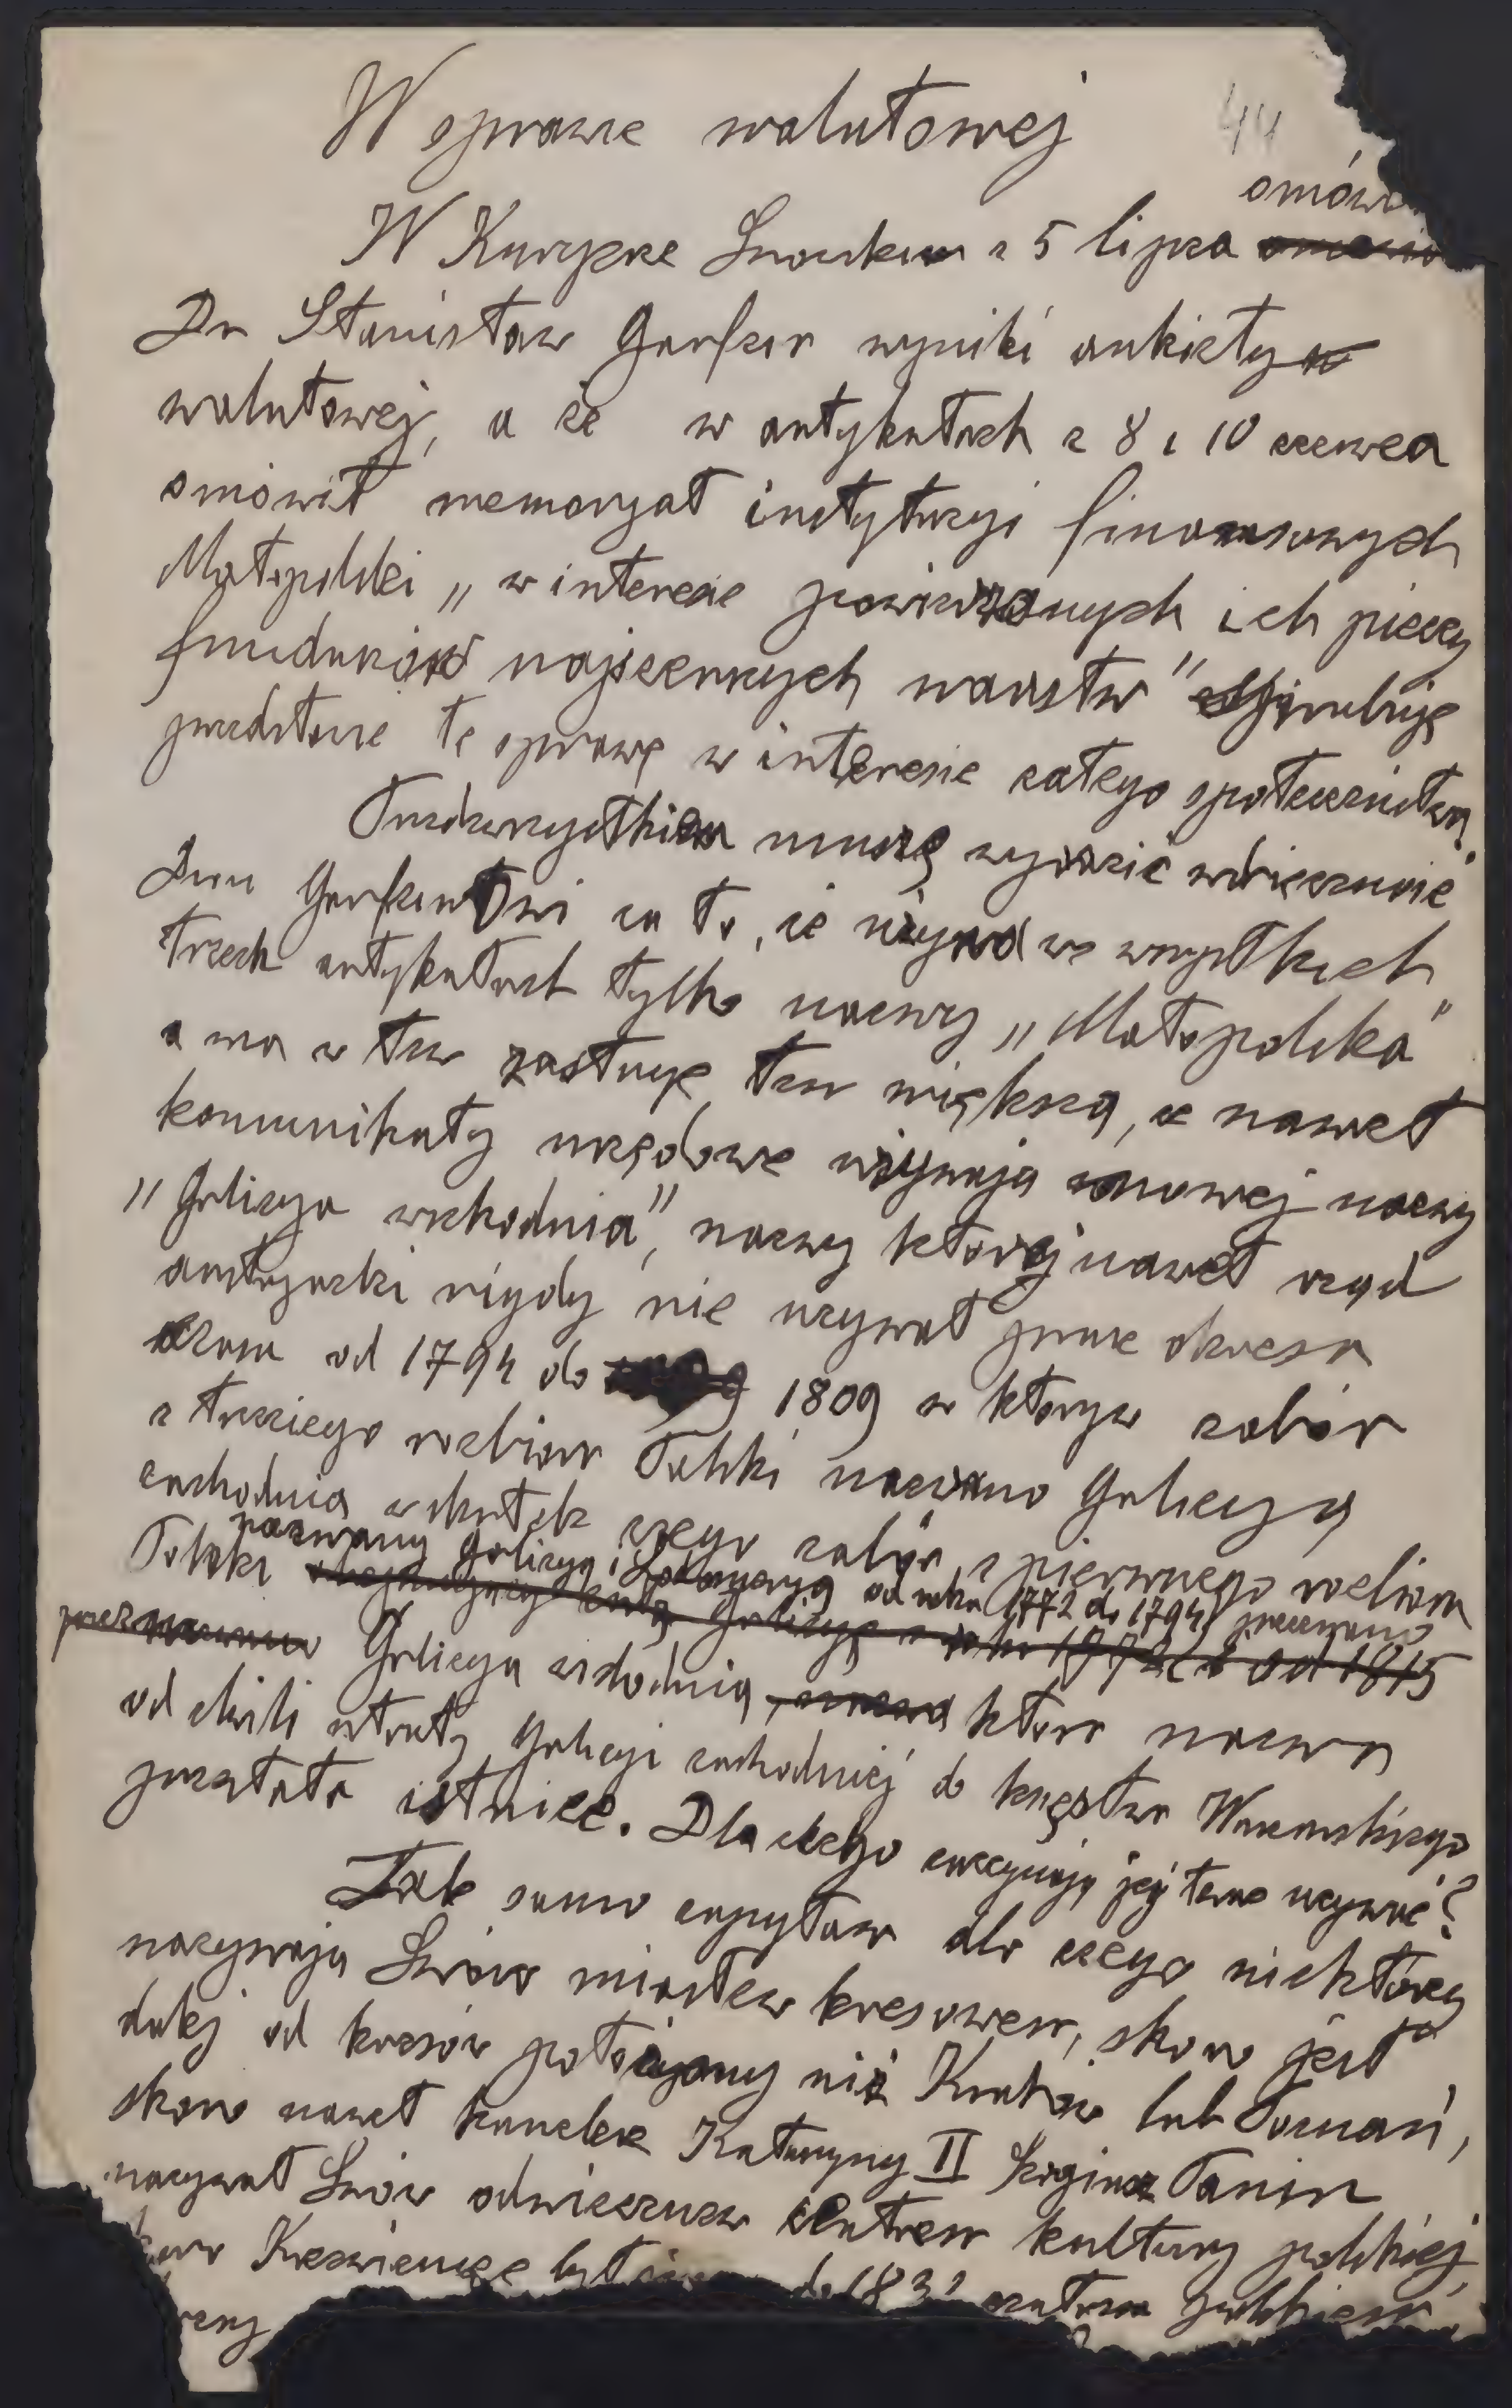 W sprawie walutowej
44
omówi
W Kuryerze Lwowskim z 5 lipca
Dr Stanisław wyniki ankiety
walutowej, a że w artykułach z 8 i 10 czerwca
omówił memoryał instytucyi finansowych
Małopolski „w interesie powierzonych ich pieczy
funduszów najszerszych warstw" spróbuję
przedstawić tę sprawę w interesie całego społeczeństwa.
Przedewszystkiem muszę wyrazić wdzięczność
Drowi za to, że używa we wszystkich
trzech artykułach tylko nazwy „Małopolska"
a ma w tem zasługę tem większą, że nawet
komunikaty urzędowe używają znowej nazwy
„Galicya wschodnia", nazwy której nawet rząd
austryacki nigdy nie używał prócz okresu
czasu od 1794 do 1809 w którym zabór
z trzeciego rozbioru Polski nazwano Galicyą
zachodnią wskutek czego zabór z pierwszego rozbioru
nazwany Galicyą i Lodomeryą od roku 1772 do 1794 przezwano
Polski obejmujący całą Galicyę z roku 1772 i od 1815
przezwano Galicyą wschodnią, która nazwa
od chwili utraty Galicyi zachodniej do księstwa Warszawskiego
przestała istnieć. Dlaczego zaczynają jej teraz używać?
Tak samo zapytam dla czego niektórzy
nazywają Lwów miastem kresowem, skoro jest
dalej od kresów położony niż Kraków lub Poznań,
skoro nawet kanclerz Katarzyny II Panin
nazywał Lwów odwiecznem centrem kultury polskiej,
Krzemieniec był do 183